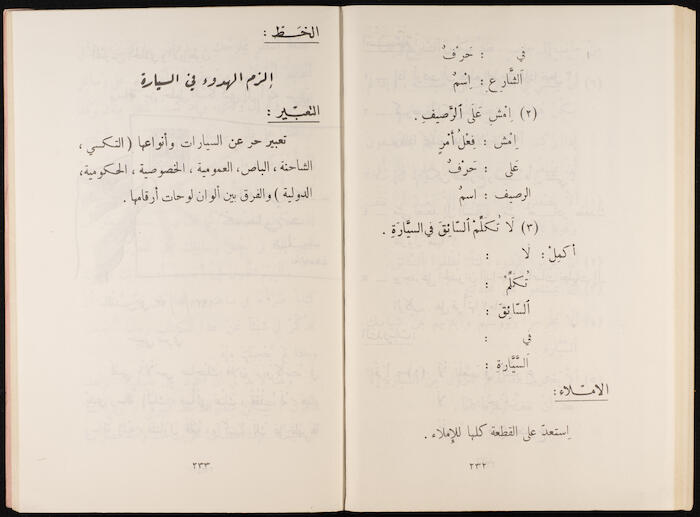 في : حَرْفٌ
الشَّارِعِ : اِسْمٌ
(٢) اِمْشِ عَلَى الرَّصِيفِ .
اِمْشِ : فِعْلُ أَمْرٍ
عَلى : حَرْفٌ
الرصيف : اسمٌ
(٣) لَا تُكَلِّمْ السَّائِقَ فِي السَّيَّارَةِ .
أكمِلْ : لَا :
تُكَلِّمْ :
السَّائِقَ :
في :
السَّيَّارَةِ :
الاملاء :
اِستعدّ على القطعة كلها للإملاء .
٢٣٢
الخط :
إلزم الهدوء في السيارة
التعبير :
تعبير حر عن السيارات وأنواعها ( التكسي ،
الشاحنة ، الباص ، العمومية ، الخصوصية ، الحكومية ،
الدولية ) والفرق بين ألوان لوحات أرقامها .
٢٣٣